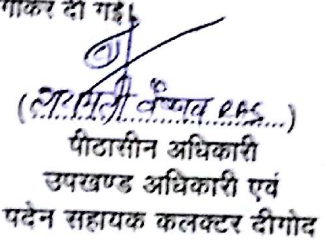 गाकर दी गई।
(... वैष्णव RAS...)
पीठासीन अधिकारी
उपखण्ड अधिकारी एवं
पदेन सहायक कलक्टर दीगोद